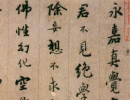 永嘉真覺
君不見絕學
除妄想不求
佛性幻化空